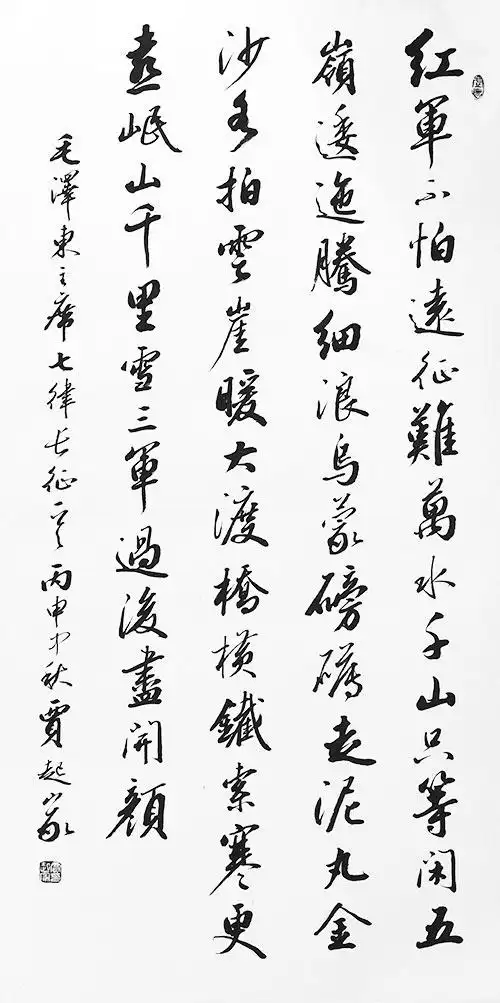 紅軍不怕遠征難萬水千山只等閑五
嶺逶迤騰細浪烏蒙磅礴走泥丸金
沙水拍雲崖暖大渡橋橫鐵索寒更
喜岷山千里雪三軍過後盡開顏
毛澤東主席七律長征一首丙申秋賈起家